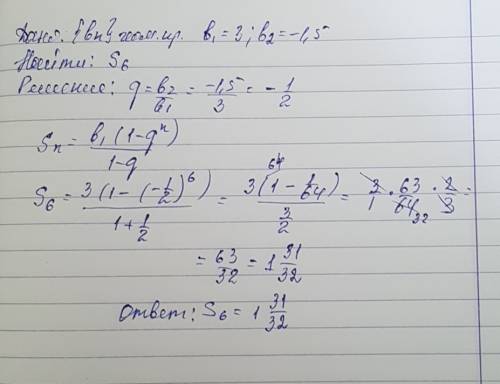 Дано: {bn} геом. пр. b₁ = 3; b₂ = -1,5
Найти: S₆
Решение: q = b₂/b₁ = -1,5/3 = - 1/2
Sₙ = b₁(1-qⁿ)/1-q
S₆ = 3(1-(-1/2)⁶)/1+1/2 = 3(1-1/64)/3/2 = 3/1 · 63/64 32 · 2/3 =
= 63/32 = 1 31/32
Ответ: S₆ = 1 31/32